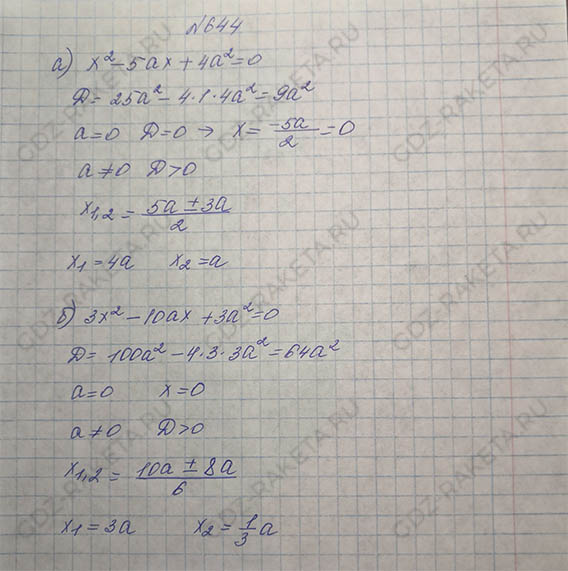 №644
а) x² - 5ax + 4a² = 0
D = 25a² - 4·1·4a² = 9a²
a = 0 D = 0 → x = -5a/2 = 0
a ≠ 0 D > 0
x₁,₂ = (5a ± 3a)/2
x₁ = 4a x₂ = a
б) 3x² - 10ax + 3a² = 0
D = 100a² - 4·3·3a² = 64a²
a = 0 x = 0
a ≠ 0 D > 0
x₁,₂ = (10a ± 8a)/6
x₁ = 3a x₂ = 1/3 a
GDZ-RAKETA.RU
GDZ-RAKETA.RU
GDZ-RAKETA.RU
GDZ-RAKETA.RU
GDZ-RAKETA.RU
GDZ-RAKETA.RU
GDZ-RAKETA.RU
GDZ-RAKETA.RU
GDZ-RAKETA.RU